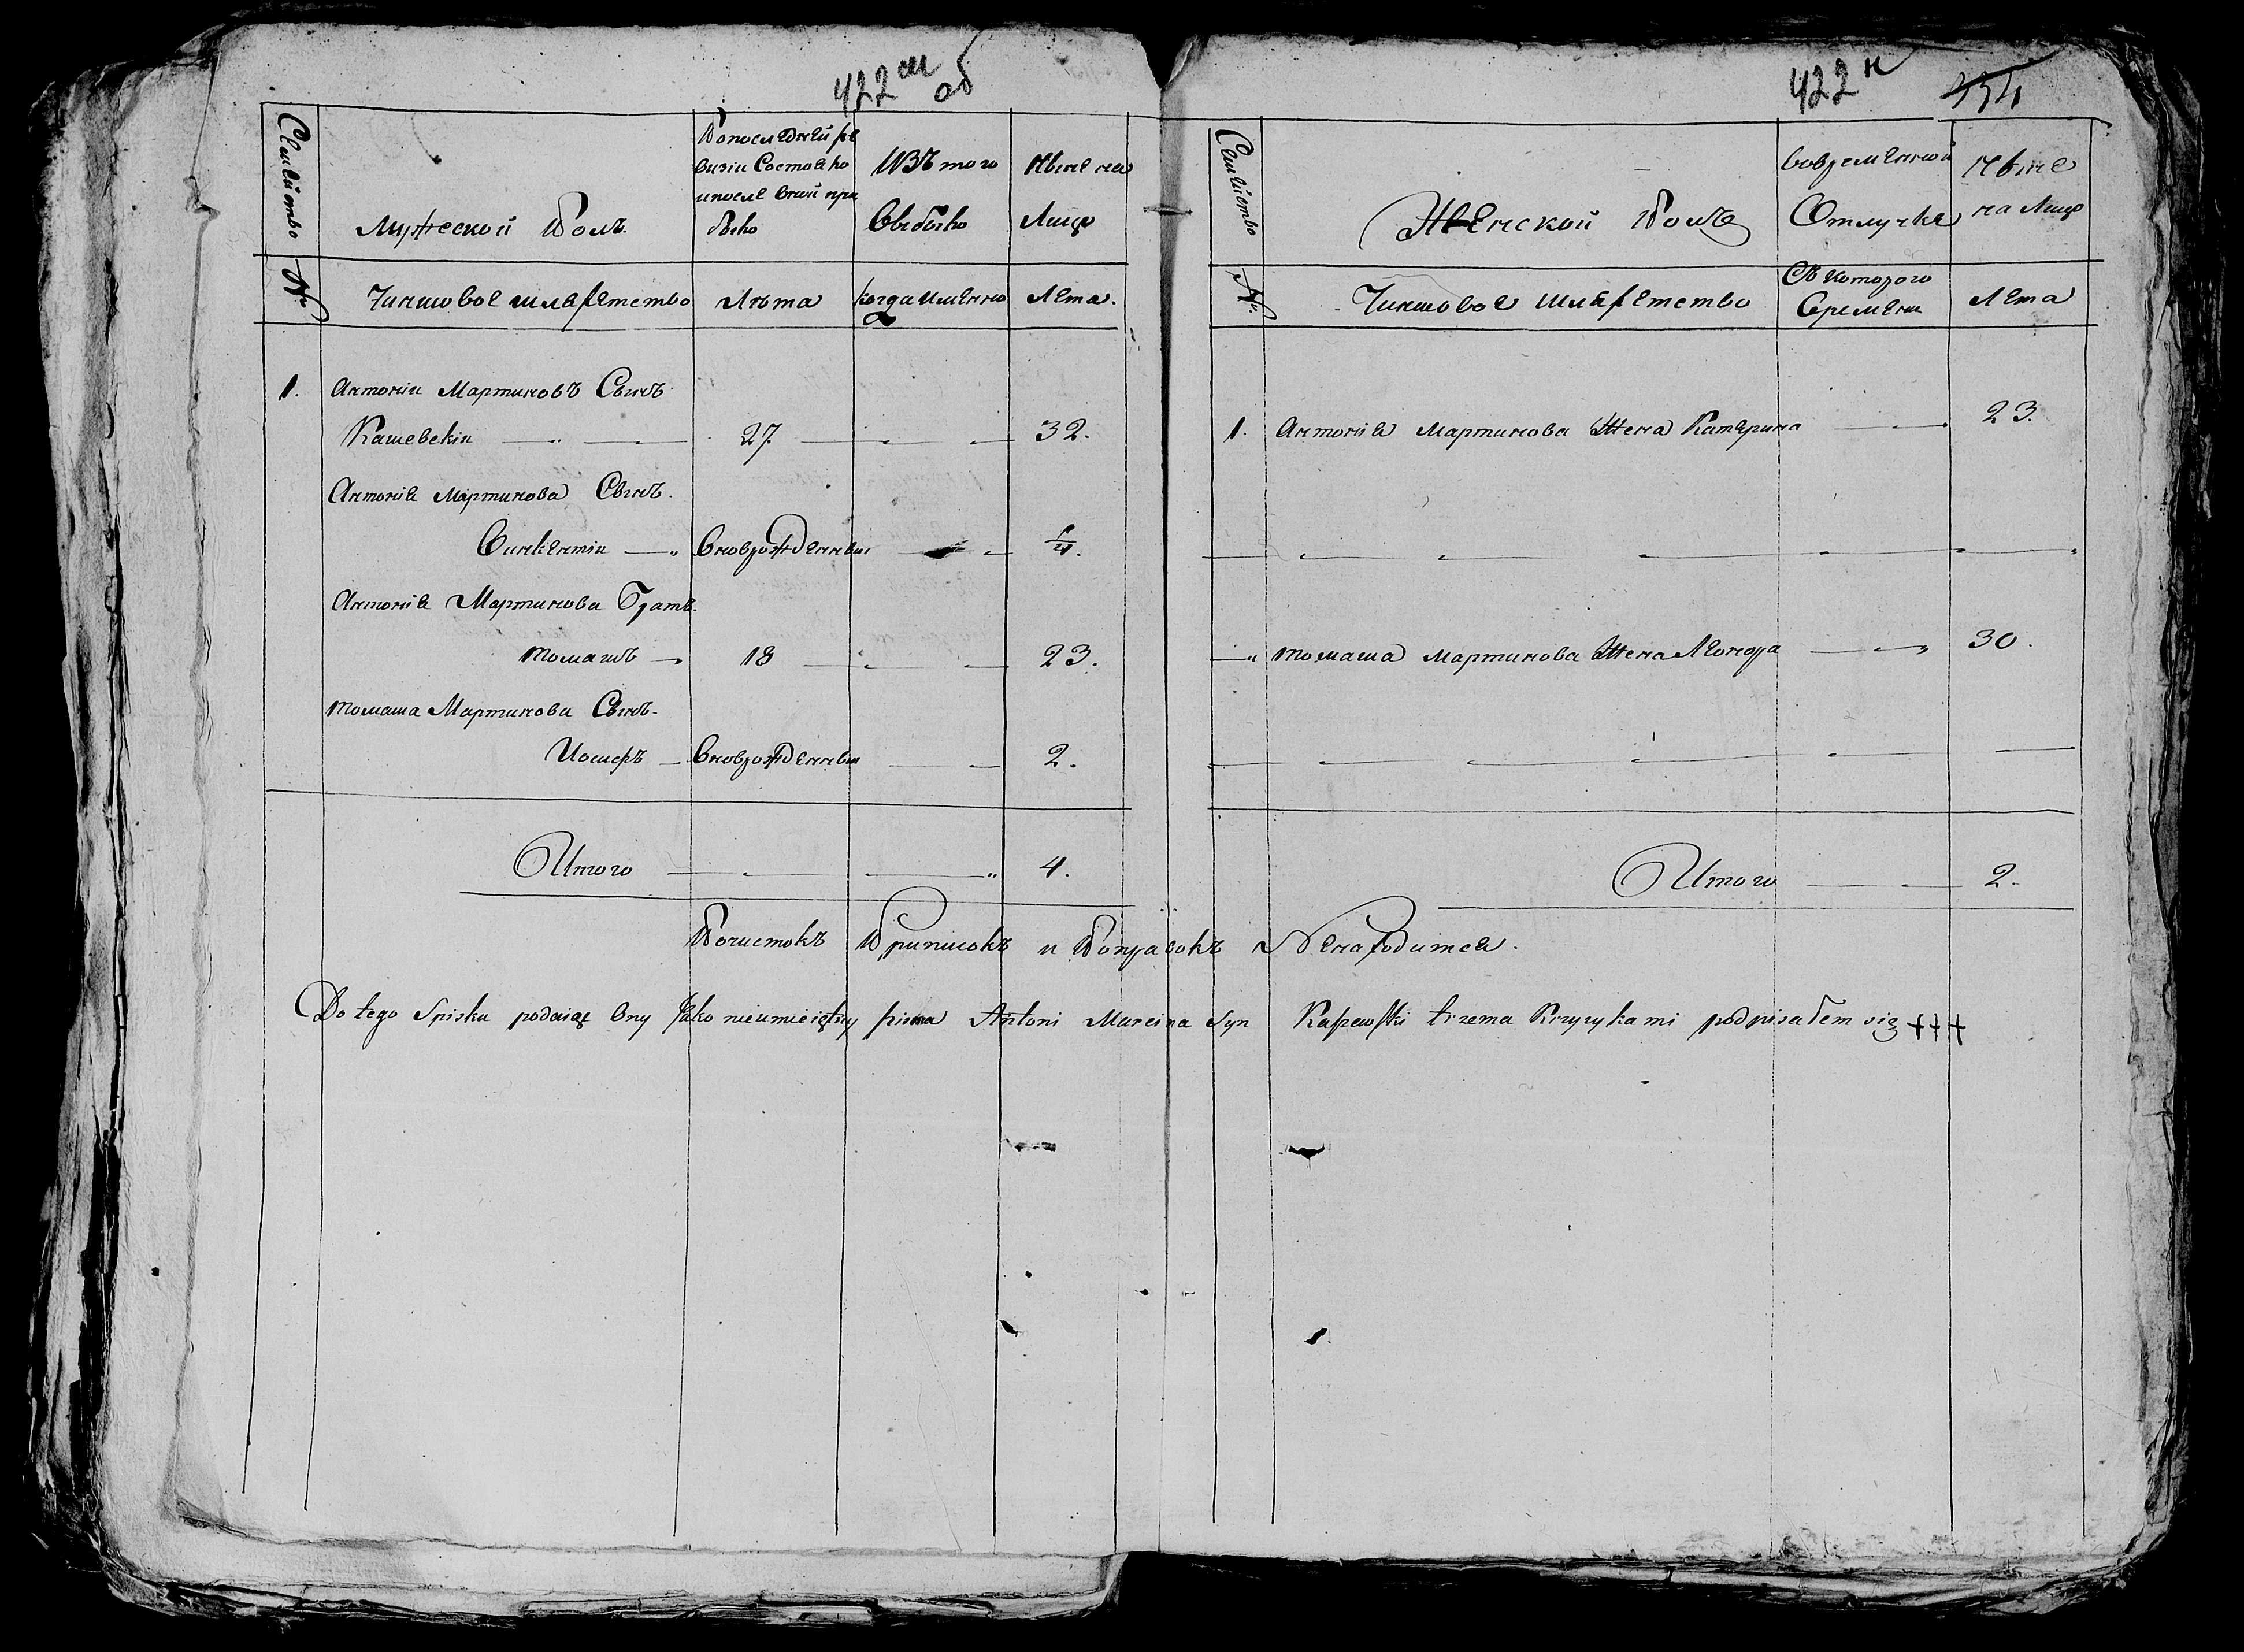 422 м об
Семйство
Мужеской Полъ.
Попоследней ре
визіи Состояло
ипосле Оной при
было
ИЗЪ того
Выбыло
Ныне на
Лицо
№
Чиншовое шляхетство
Лѣта
когда именно
Лета.
1. Антоніи Мартиновъ Сынъ
Кашевскіи 27 32.
Антонія Мартинова Сынъ.
Винкентіи Вноврожденныи 1/4.
Антонія Мартинова Братъ.
Томашъ 18 23.
Томаша Мартинова Сынъ.
Иосифъ Вноврожденныи 2.
Итого 4.
422 н
Семйство
Женской Полъ
вовременной
Отлучке
Ныне
на Лицо
№
Чиншовое шляхетство
Съ которого
Времени
Лета
1. Антонія Мартинова Жена Катерина 23.
Томаша Мартинова Жена Леонора 30.
Итого 2.
Почистокъ Приписокъ и Поправокъ Ненаходится.
Do tego Spisku podaiąc Ony Jako nieumieiętny pisma Antoni Marcina Syn Kaszewski trzema Krzyzykami podpisałem się +++